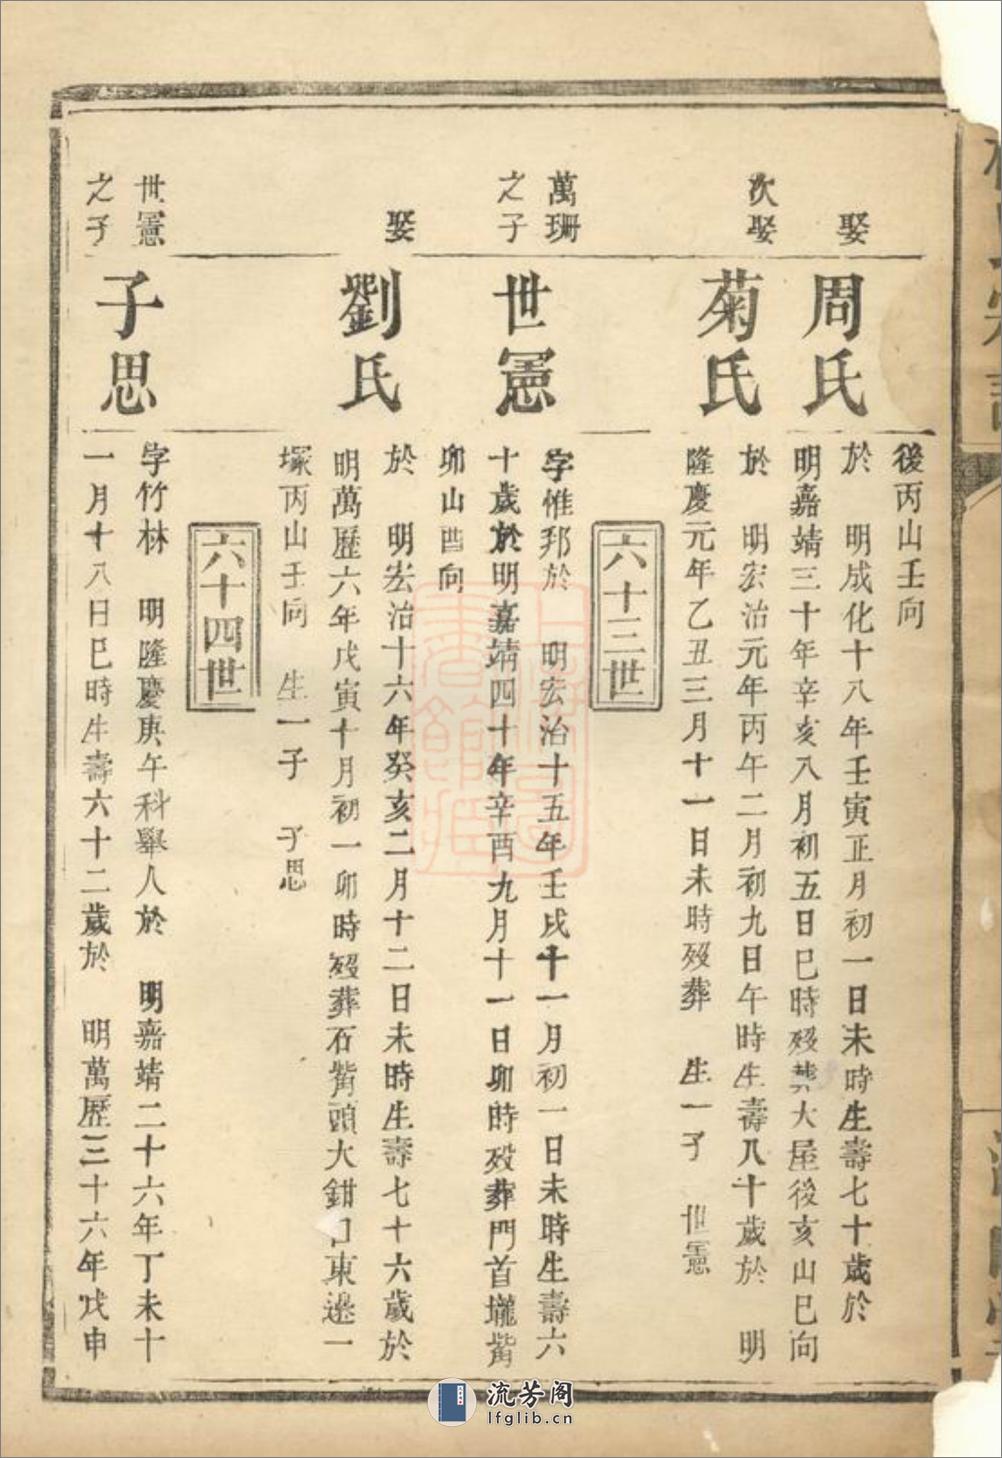 後丙山壬向
娶
周氏
於　明成化十八年壬寅正月初一日未時生壽七十歲於
明嘉靖三十年辛亥八月初五日巳時歿葬大屋後亥山巳向
次娶
菊氏
於　明宏治元年丙午二月初九日午時生壽八十歲於　明
隆慶元年乙丑三月十一日未時歿葬　生一子　世憲
六十三世
萬珊
之子
世憲
字惟邦於　明宏治十五年壬戌十一月初一日未時生壽六
十歲於明嘉靖四十年辛酉九月十一日卯時歿葬門首壠觜
卯山酉向
娶
劉氏
於　明宏治十六年癸亥二月十二日未時生壽七十六歲於
明萬歷六年戊寅十月初一卯時歿葬石觜頭大鉗口東邊一
塚丙山壬向　生一子　子思
六十四世
世憲
之子
子思
字竹林　明隆慶庚午科舉人於　明嘉靖二十六年丁未十
一月十八日巳時生壽六十二歲於　明萬歷三十六年戊申
流芳阁
lfglib.cn